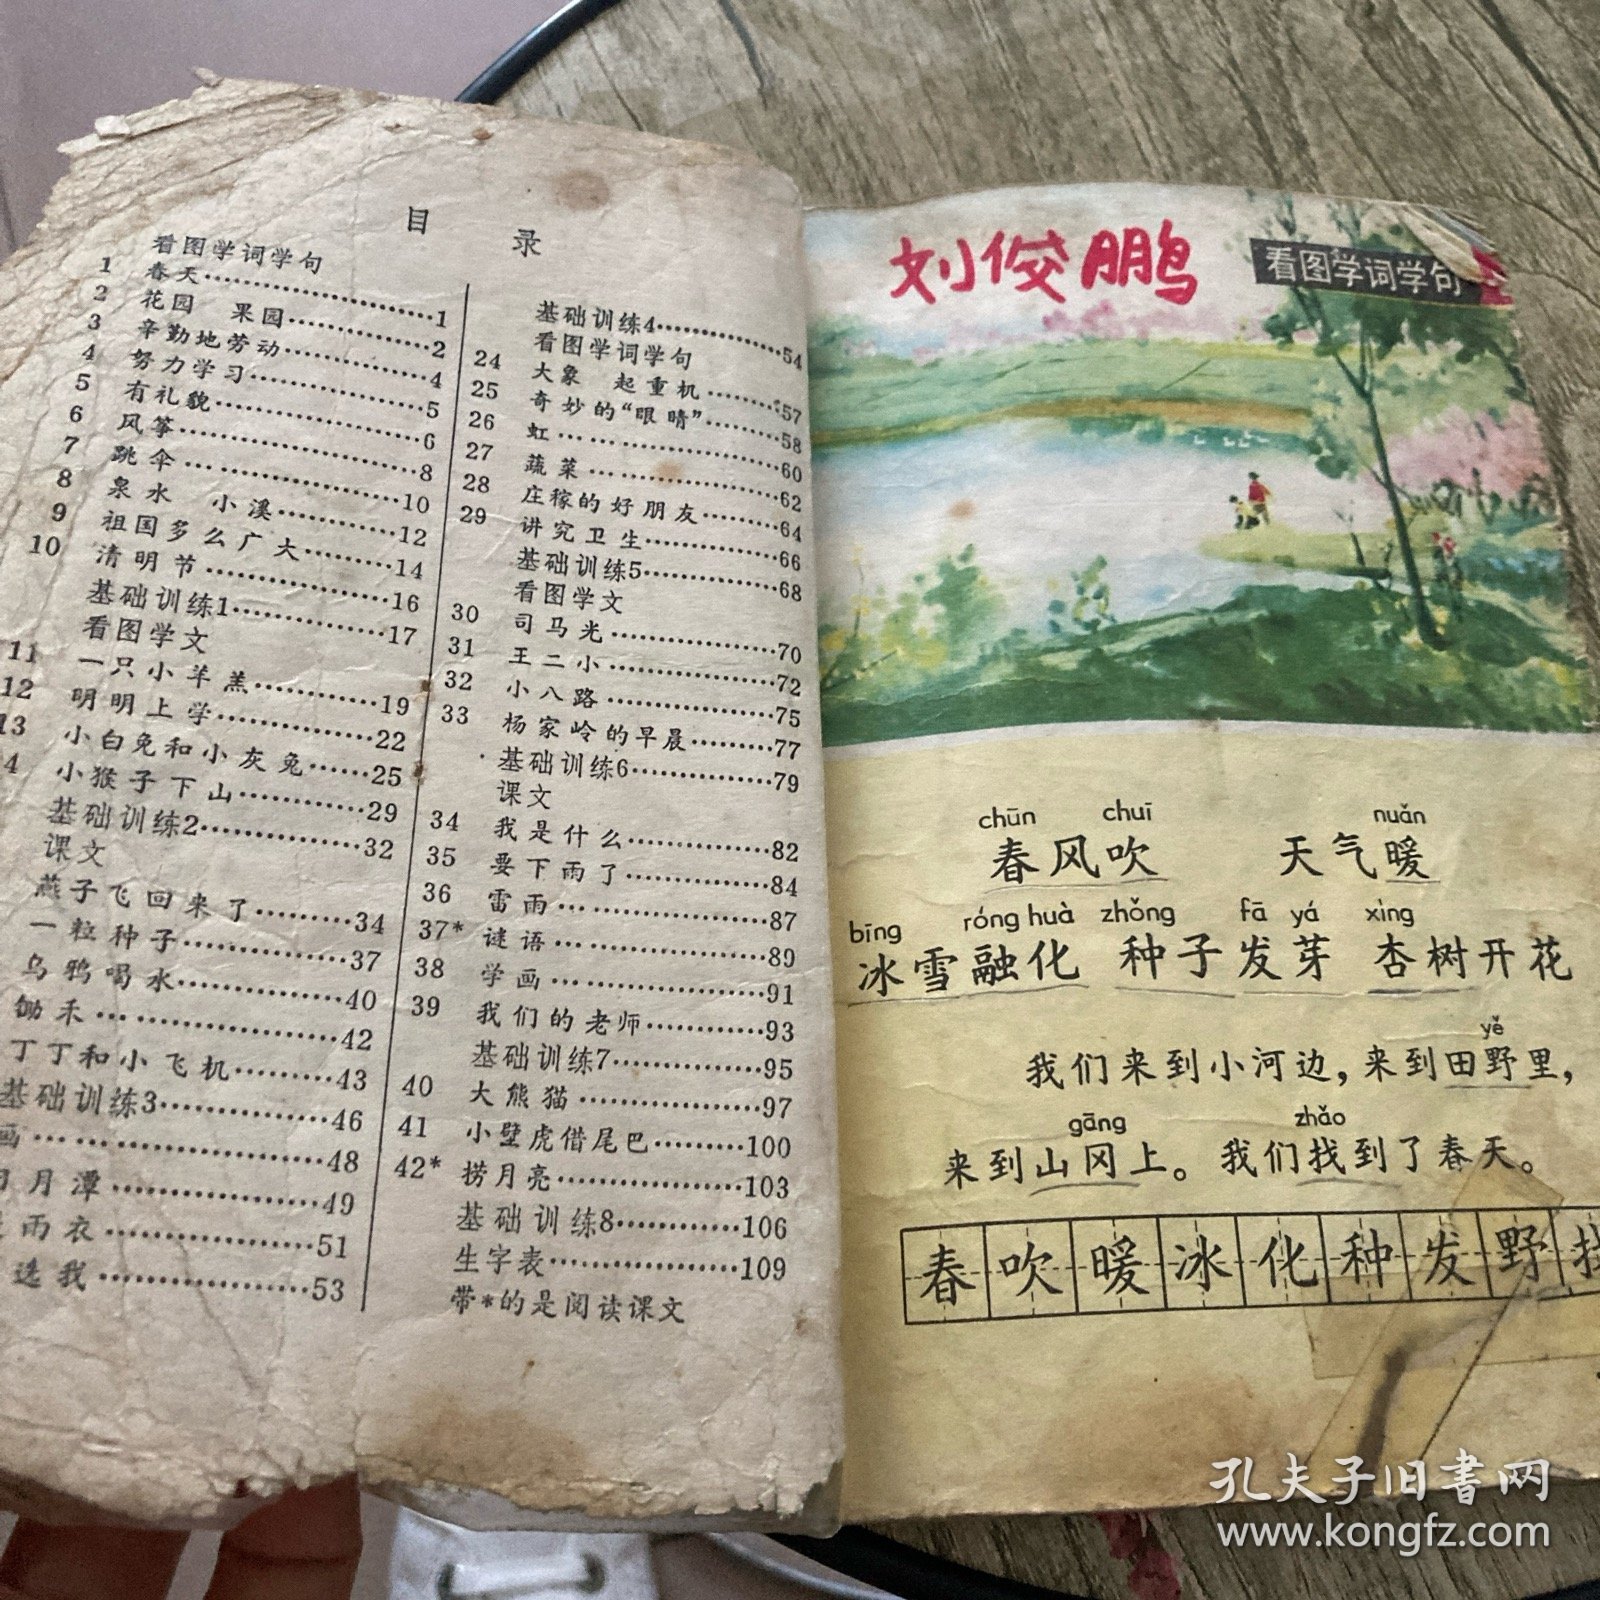 目 录
看图学词学句
1 春天……1
2 花园 果园……2
3 辛勤地劳动……4
4 努力学习……5
5 有礼貌……6
6 风筝……8
7 跳伞……10
8 泉水 小溪……12
9 祖国多么广大……14
10 清明节……16
基础训练1……17
看图学文
11 一只小羊羔……19
12 明明上学……22
13 小白兔和小灰兔……25
4 小猴子下山……29
基础训练2……32
课文
燕子飞回来了……34
一粒种子……37
乌鸦喝水……40
锄禾……42
丁丁和小飞机……43
基础训练3……46
画……48
月潭……49
雨衣……51
选我……53
基础训练4……54
看图学词学句
24 大象 起重机……57
25 奇妙的“眼睛”……58
26 虹……60
27 蔬菜……62
28 庄稼的好朋友……64
29 讲究卫生……66
基础训练5……68
看图学文
30 司马光……70
31 王二小……72
32 小八路……75
33 杨家岭的早晨……77
基础训练6……79
课文
34 我是什么……82
35 要下雨了……84
36 雷雨……87
37* 谜语……89
38 学画……91
39 我们的老师……93
基础训练7……95
40 大熊猫……97
41 小壁虎借尾巴……100
42* 捞月亮……103
基础训练8……106
生字表……109
带*的是阅读课文
刘俊鹏
看图学词学句
chūn chuī nuǎn
春风吹 天气暖
bīng róng huà zhǒng fā yá xìng
冰雪融化 种子发芽 杏树开花
yě
我们来到小河边，来到田野里，
gāng zhǎo
来到山冈上。我们找到了春天。
春 吹 暖 冰 化 种 发 野 找
孔夫子旧书网
www.kongfz.com